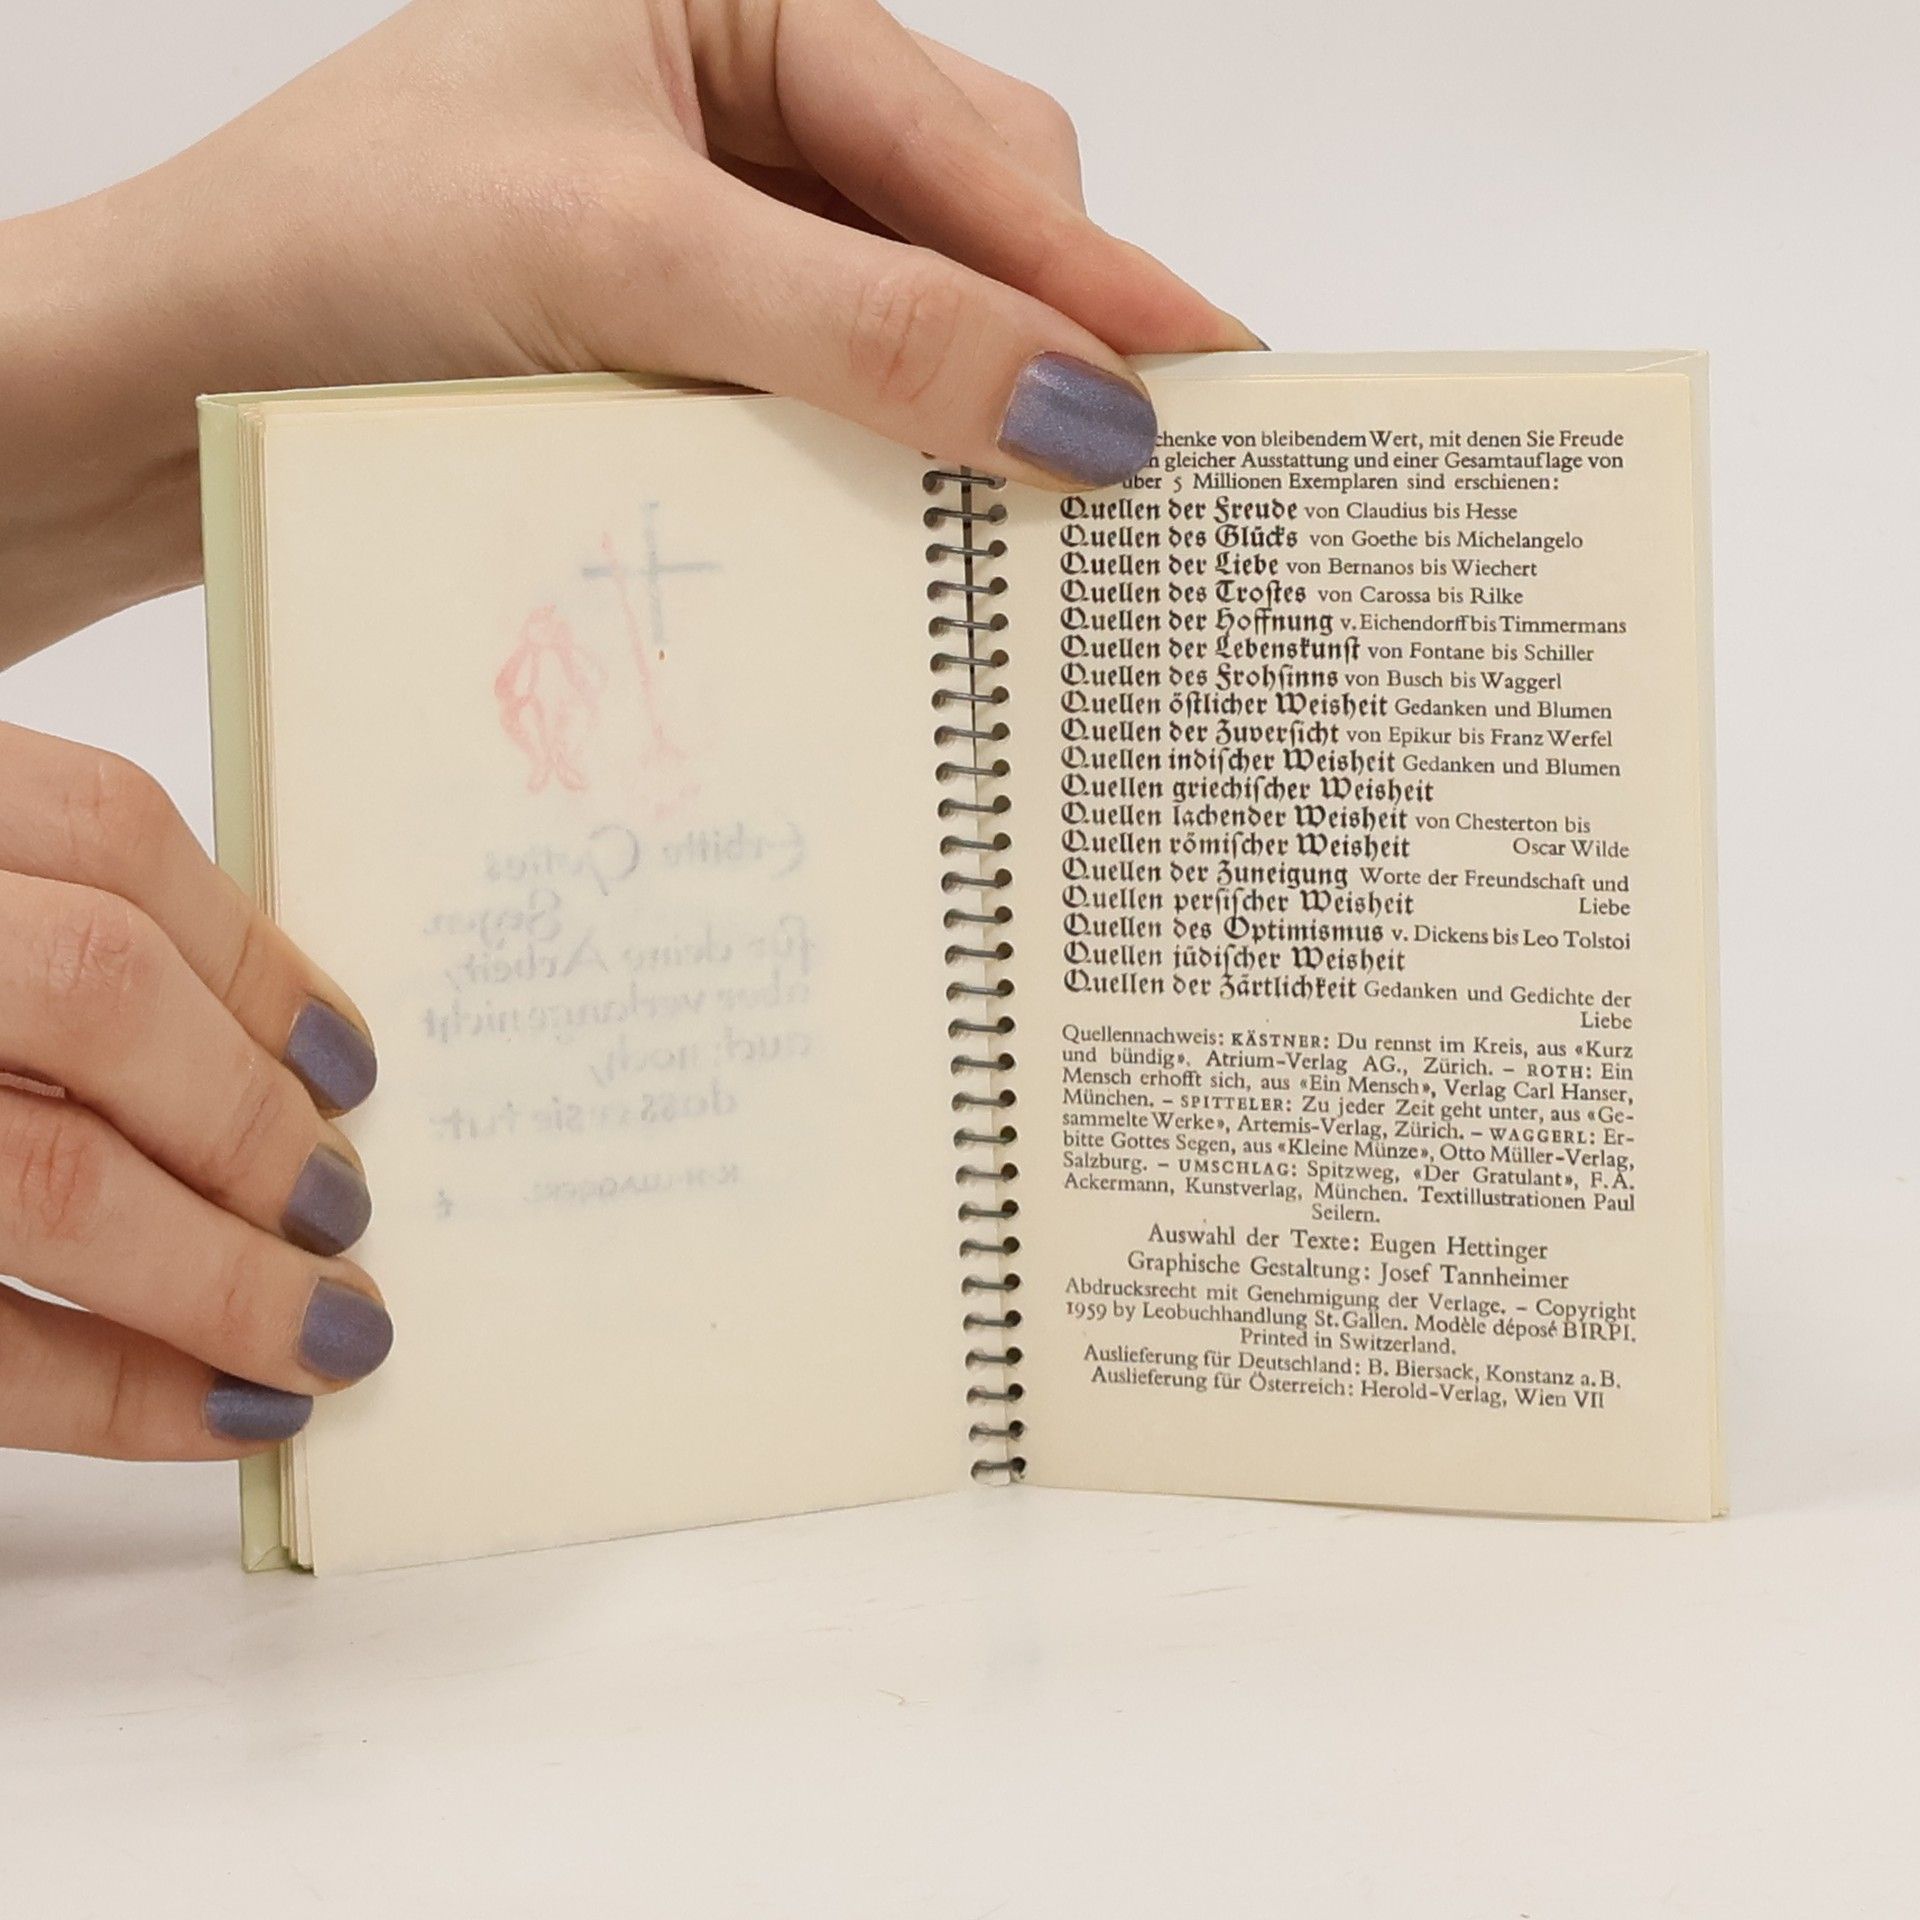 Erbitte Gottes
Segen
für deine Arbeit,
aber verlange nicht
auch noch,
dass er sie tut.
K·H·WAGGERL
von bleibendem Wert, mit denen Sie Freude
gleicher Ausstattung und einer Gesamtauflage von
über 5 Millionen Exemplaren sind erschienen:
Quellen der Freude von Claudius bis Hesse
Quellen des Glücks von Goethe bis Michelangelo
Quellen der Liebe von Bernanos bis Wiechert
Quellen des Troſtes von Carossa bis Rilke
Quellen der Hoffnung v. Eichendorff bis Timmermans
Quellen der Lebenskunſt von Fontane bis Schiller
Quellen des Frohſinns von Busch bis Waggerl
Quellen öſtlicher Weisheit Gedanken und Blumen
Quellen der Zuverſicht von Epikur bis Franz Werfel
Quellen indiſcher Weisheit Gedanken und Blumen
Quellen griechiſcher Weisheit
Quellen lachender Weisheit von Chesterton bis
Quellen römiſcher Weisheit Oscar Wilde
Quellen der Zuneigung Worte der Freundschaft und
Quellen perſiſcher Weisheit Liebe
Quellen des Optimismus v. Dickens bis Leo Tolstoi
Quellen jüdiſcher Weisheit
Quellen der Zärtlichkeit Gedanken und Gedichte der
Liebe
Quellennachweis: KÄSTNER: Du rennst im Kreis, aus «Kurz
und bündig», Atrium-Verlag AG., Zürich. – ROTH: Ein
Mensch erhofft sich, aus «Ein Mensch», Verlag Carl Hanser,
München. – SPITTELER: Zu jeder Zeit geht unter, aus «Ge-
sammelte Werke», Artemis-Verlag, Zürich. – WAGGERL: Er-
bitte Gottes Segen, aus «Kleine Münze», Otto Müller-Verlag,
Salzburg. – UMSCHLAG: Spitzweg, «Der Gratulant», F. A.
Ackermann, Kunstverlag, München. Textillustrationen Paul
Seilern.
Auswahl der Texte: Eugen Hettinger
Graphische Gestaltung: Josef Tannheimer
Abdrucksrecht mit Genehmigung der Verlage. – Copyright
1959 by Leobuchhandlung St. Gallen. Modèle déposé BIRPI.
Printed in Switzerland.
Auslieferung für Deutschland: B. Biersack, Konstanz a. B.
Auslieferung für Österreich: Herold-Verlag, Wien VII